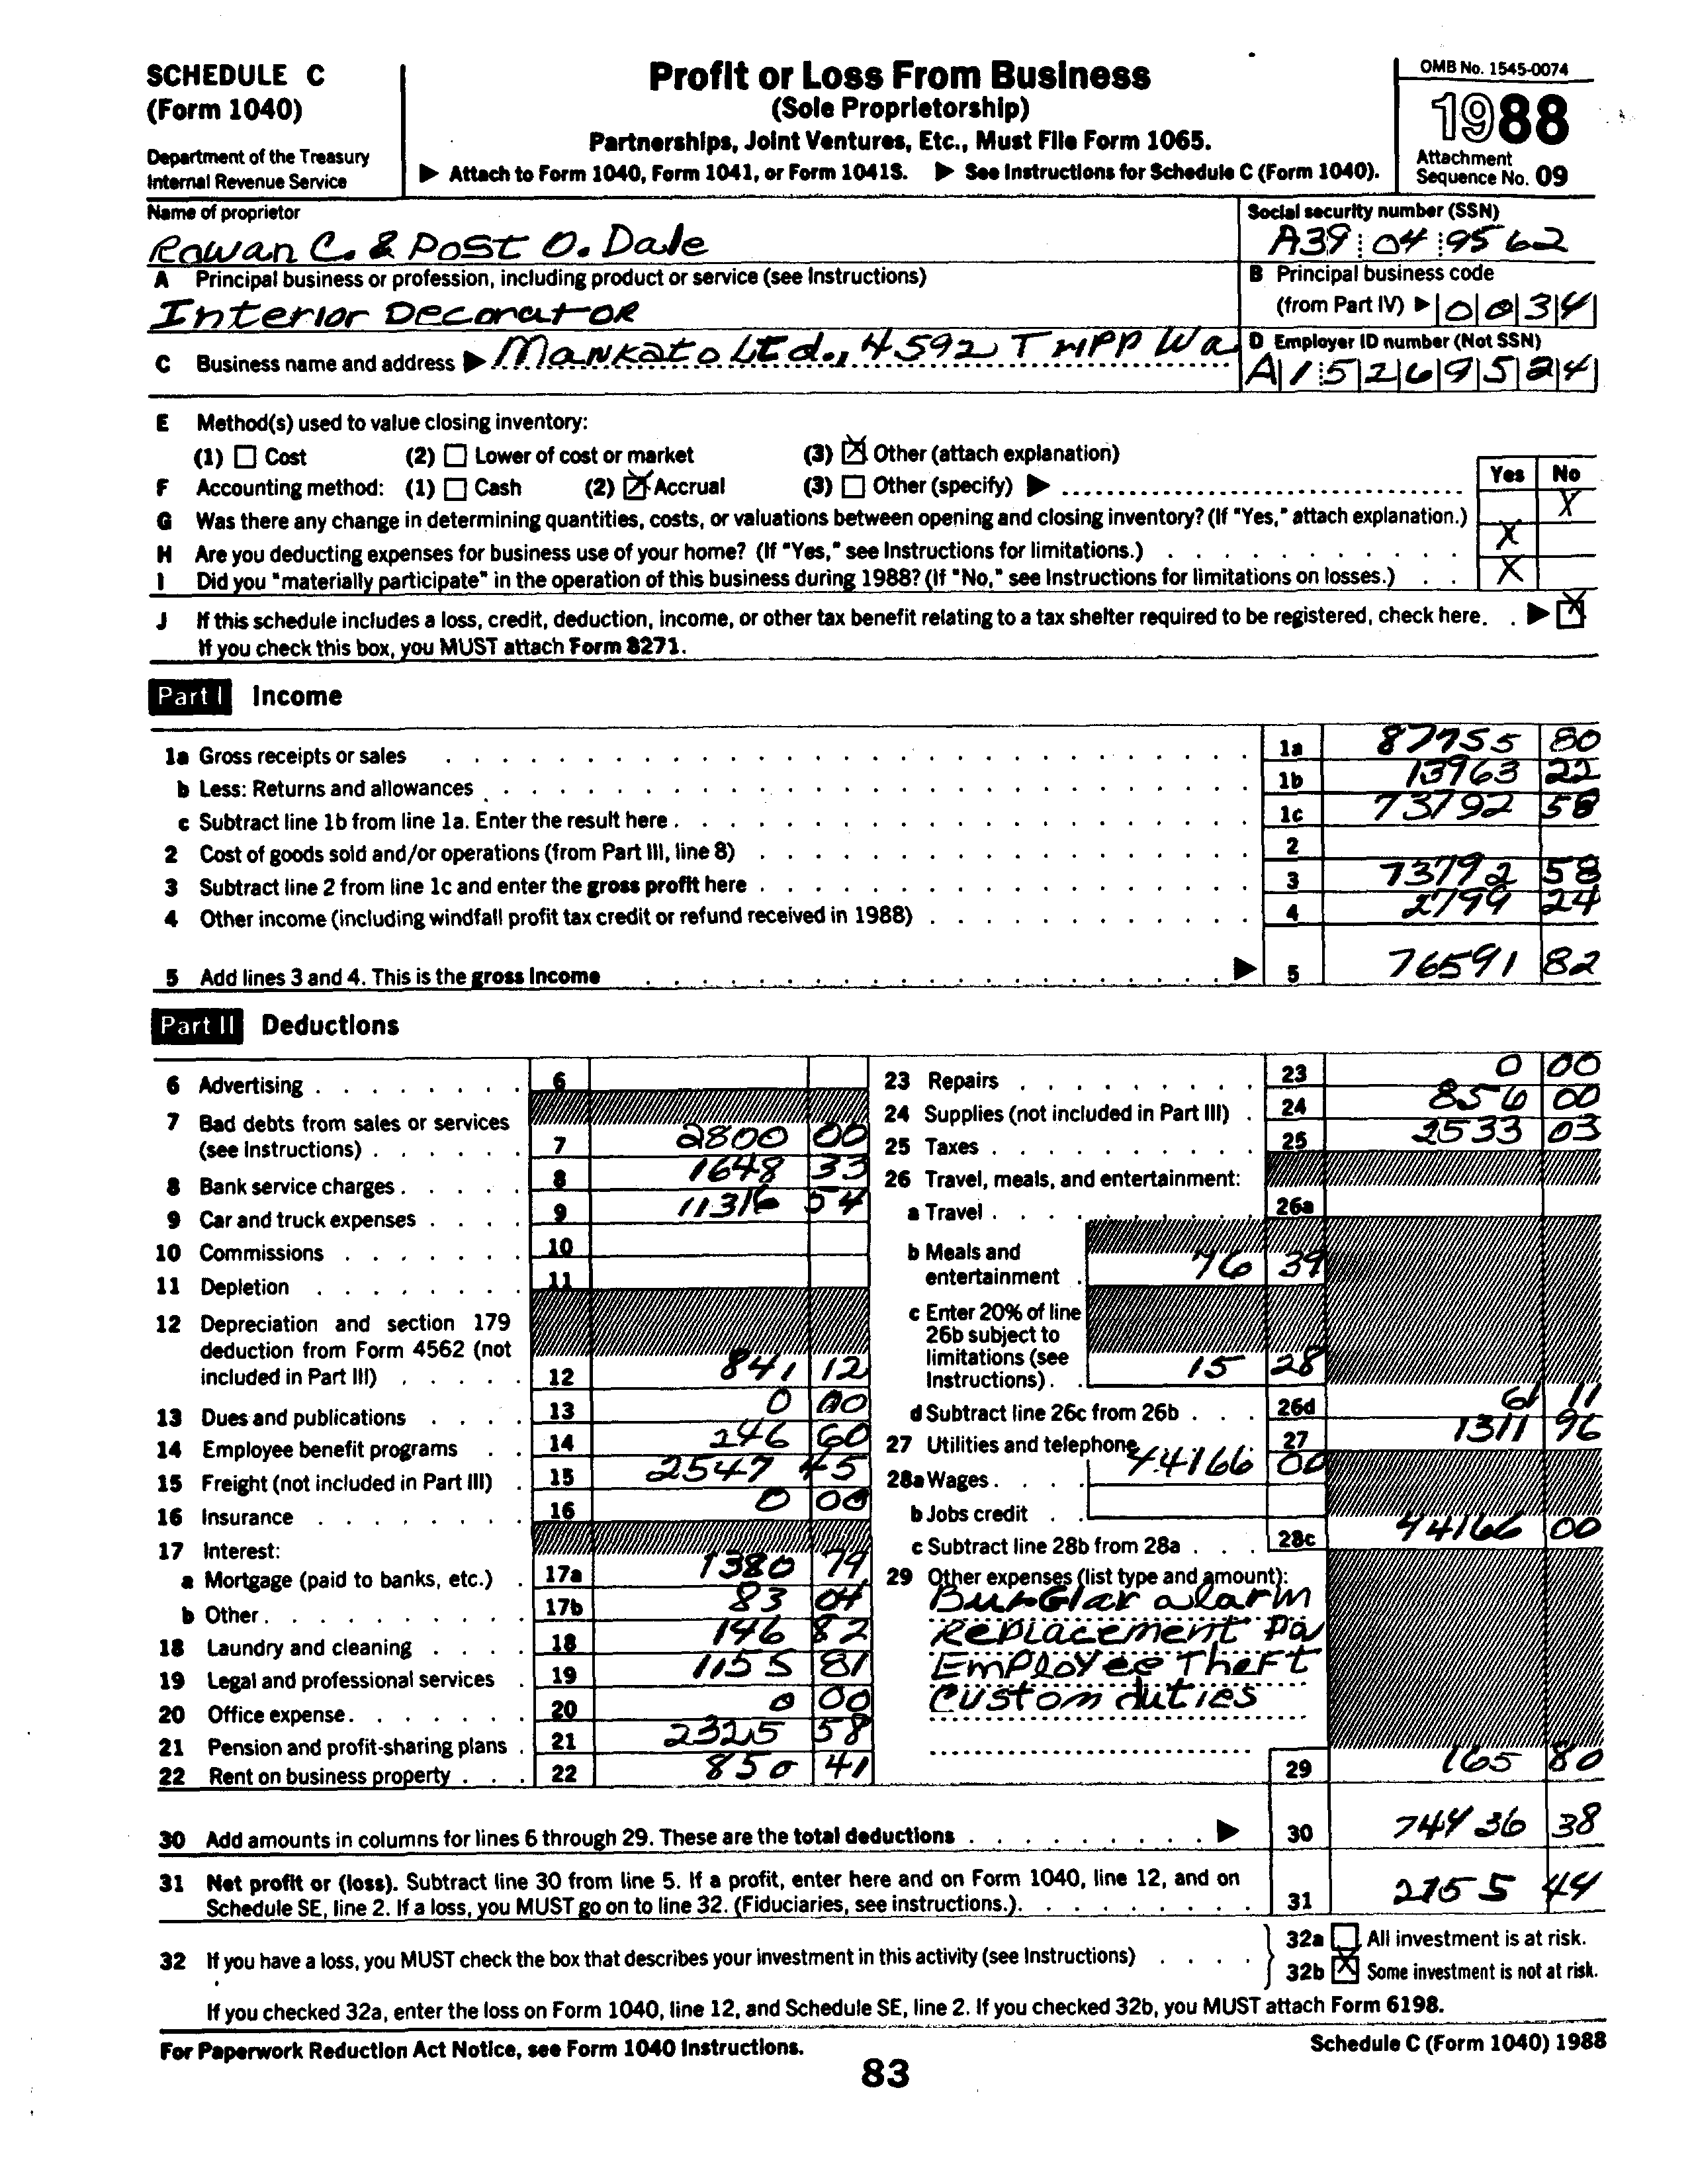 SCHEDULE C
(Form 1040)
Department of the Treasury
Internal Revenue Service
Profit or Loss From Business
(Sole Proprietorship)
Partnerships, Joint Ventures, Etc., Must File Form 1065.
▶ Attach to Form 1040, Form 1041, or Form 1041S. ▶ See Instructions for Schedule C (Form 1040).
OMB No. 1545-0074
1988
Attachment
Sequence No. 09
Name of proprietor
Rowan C. & Post O. Dale
Social security number (SSN)
A39 04 9562
A Principal business or profession, including product or service (see Instructions)
Interior Decorator
B Principal business code
(from Part IV) ▶ 0 0 3 4
C Business name and address ▶ Mankato Ltd., 4592 Tripp Wa
D Employer ID number (Not SSN)
A 1 5 2 6 9 5 2 4
E Method(s) used to value closing inventory:
(1) Cost (2) Lower of cost or market (3) X Other (attach explanation)
F Accounting method: (1) Cash (2) X Accrual (3) Other (specify) ▶
Yes No
G Was there any change in determining quantities, costs, or valuations between opening and closing inventory? (If "Yes," attach explanation.) X
H Are you deducting expenses for business use of your home? (If "Yes," see Instructions for limitations.) X
I Did you "materially participate" in the operation of this business during 1988? (If "No," see Instructions for limitations on losses.) X
J If this schedule includes a loss, credit, deduction, income, or other tax benefit relating to a tax shelter required to be registered, check here. ▶ X
If you check this box, you MUST attach Form 8271.
Part I Income
1a Gross receipts or sales 1a 87755 80
b Less: Returns and allowances 1b 13963 22
c Subtract line 1b from line 1a. Enter the result here. 1c 73792 58
2 Cost of goods sold and/or operations (from Part III, line 8) 2
3 Subtract line 2 from line 1c and enter the gross profit here 3 73792 58
4 Other income (including windfall profit tax credit or refund received in 1988) 4 2799 24
5 Add lines 3 and 4. This is the gross income ▶ 5 76591 82
Part II Deductions
6 Advertising 6
7 Bad debts from sales or services
(see Instructions) 7 2800 00
8 Bank service charges 8 1648 33
9 Car and truck expenses 9 11316 54
10 Commissions 10
11 Depletion 11
12 Depreciation and section 179
deduction from Form 4562 (not
included in Part III) 12 841 12
13 Dues and publications 13 0 00
14 Employee benefit programs 14 246 60
15 Freight (not included in Part III) 15 2547 45
16 Insurance 16 0 00
17 Interest:
a Mortgage (paid to banks, etc.) 17a 1380 79
b Other 17b 83 04
18 Laundry and cleaning 18 146 82
19 Legal and professional services 19 1155 81
20 Office expense 20 0 00
21 Pension and profit-sharing plans 21 2325 58
22 Rent on business property 22 850 41
23 Repairs 23 0 00
24 Supplies (not included in Part III) 24 856 00
25 Taxes 25 2533 03
26 Travel, meals, and entertainment:
a Travel 26a
b Meals and
entertainment 76 39
c Enter 20% of line
26b subject to
limitations (see
Instructions) 15 28
d Subtract line 26c from 26b 26d 61 11
27 Utilities and telephone 27 1311 96
28a Wages 44166 00
b Jobs credit
c Subtract line 28b from 28a 28c 44166 00
29 Other expenses (list type and amount):
Burglar alarm
Replacement Pa
Employee Theft
Custom duties
29 165 80
30 Add amounts in columns for lines 6 through 29. These are the total deductions ▶ 30 74436 38
31 Net profit or (loss). Subtract line 30 from line 5. If a profit, enter here and on Form 1040, line 12, and on
Schedule SE, line 2. If a loss, you MUST go on to line 32. (Fiduciaries, see instructions.) 31 2155 44
32 If you have a loss, you MUST check the box that describes your investment in this activity (see Instructions)
32a All investment is at risk.
32b X Some investment is not at risk.
If you checked 32a, enter the loss on Form 1040, line 12, and Schedule SE, line 2. If you checked 32b, you MUST attach Form 6198.
For Paperwork Reduction Act Notice, see Form 1040 Instructions.
Schedule C (Form 1040) 1988
83